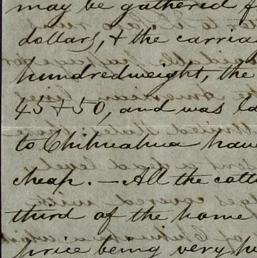 may be gathered f
dollars, & the carria
hundredweight, the
45 & 50, and was la
to Chihuahua have
cheap. — All the cott
third of the home
price being very h